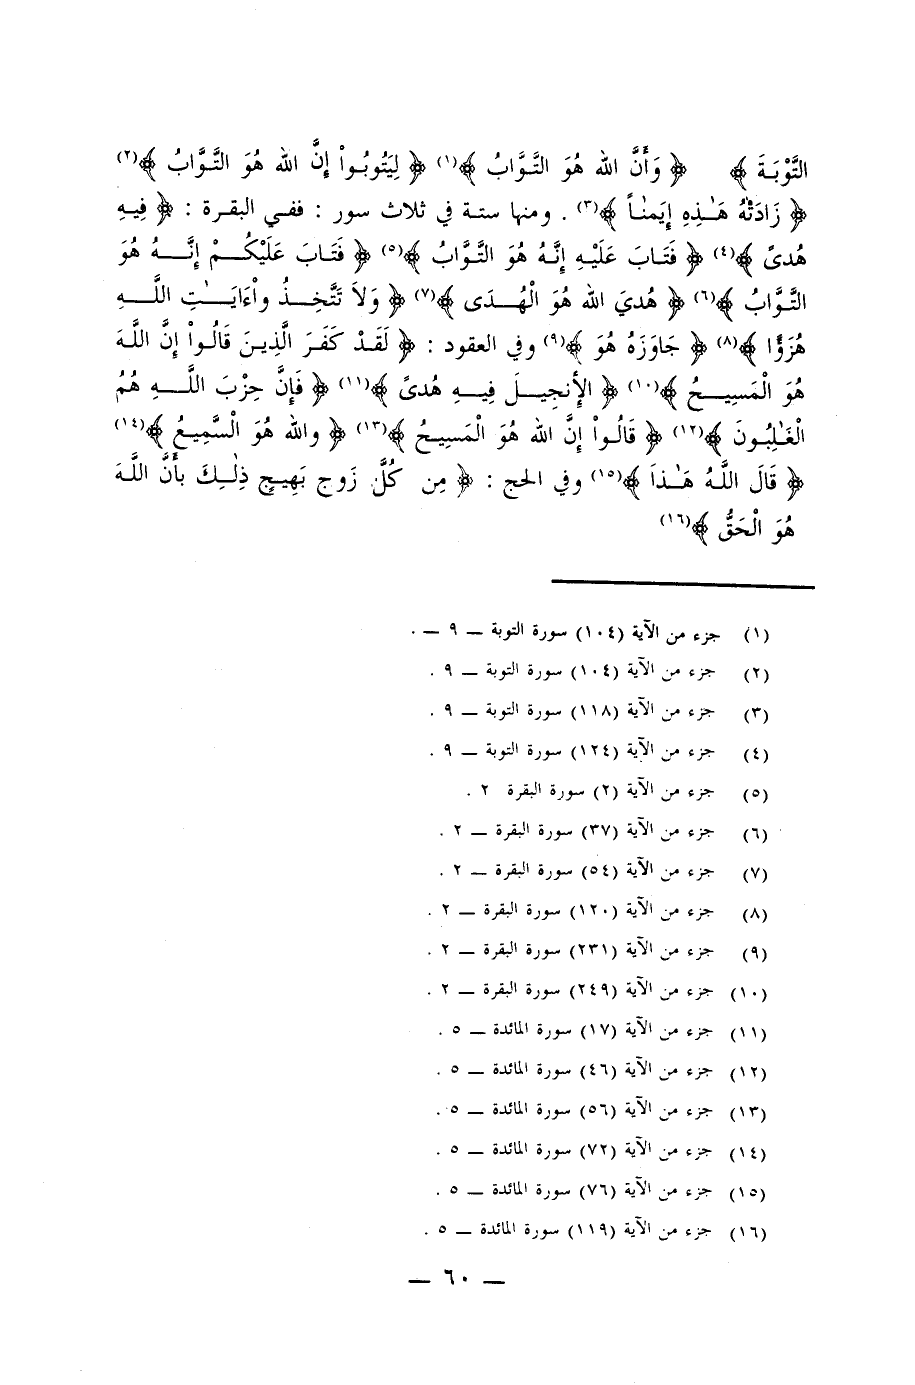 التَّوْبَةَ ﴾ ﴿ وَأَنَّ الله هُوَ التَّوَّابُ ﴾(١) ﴿ لِيَتُوبُواْ إِنَّ الله هُوَ التَّوَّابُ ﴾(٢)
﴿ زَادَتْهُ هَـٰذِهِ إِيَمٰناً ﴾(٣) . ومنها ستة في ثلاث سور : ففي البقرة : ﴿ فِيهِ
هُدىً ﴾(٤) ﴿ فَتَابَ عَلَيْهِ إِنَّهُ هُوَ التَّوَّابُ ﴾(٥) ﴿ فَتَابَ عَلَيْكُمْ إِنَّهُ هُوَ
التَّوَّابُ ﴾(٦) ﴿ هُدىَ الله هُوَ الْهُدَى ﴾(٧) ﴿ وَلَا تَتَّخِذُواْ ءَايَـٰتِ اللَّهِ
هُزَوًا ﴾(٨) ﴿ جَاوَزَهُ هُوَ ﴾(٩) وفي العقود : ﴿ لَقَدْ كَفَرَ الَّذِينَ قَالُواْ إِنَّ اللَّهَ
هُوَ الْمَسِيحُ ﴾(١٠) ﴿ الأنجِيلَ فِيهِ هُدىً ﴾(١١) ﴿ فَإِنَّ حِزْبَ اللَّهِ هُمُ
الْغَـٰلِبُونَ ﴾(١٢) ﴿ قَالُواْ إِنَّ الله هُوَ الْمَسِيحُ ﴾(١٣) ﴿ والله هُوَ السَّمِيعُ ﴾(١٤)
﴿ قَالَ اللَّهُ هَـٰذَا ﴾(١٥) وفي الحج : ﴿ مِن كُلِّ زَوج بَهِيجٍ ذٰلِكَ بأَنَّ اللَّهَ
هُوَ الْحَقُّ ﴾(١٦)
(١) جزء من الآية (١٠٤) سورة التوبة ــ ٩ ــ .
(٢) جزء من الآية (١٠٤) سورة التوبة ــ ٩ .
(٣) جزء من الآية (١١٨) سورة التوبة ــ ٩ .
(٤) جزء من الآية (١٢٤) سورة التوبة ــ ٩ .
(٥) جزء من الآية (٢) سورة البقرة ٢ .
(٦) جزء من الآية (٣٧) سورة البقرة ــ ٢ .
(٧) جزء من الآية (٥٤) سورة البقرة ــ ٢ .
(٨) جزء من الآية (١٢٠) سورة البقرة ــ ٢ .
(٩) جزء من الآية (٢٣١) سورة البقرة ــ ٢ .
(١٠) جزء من الآية (٢٤٩) سورة البقرة ــ ٢ .
(١١) جزء من الآية (١٧) سورة المائدة ــ ٥ .
(١٢) جزء من الآية (٤٦) سورة المائدة ــ ٥ .
(١٣) جزء من الآية (٥٦) سورة المائدة ــ ٥ .
(١٤) جزء من الآية (٧٢) سورة المائدة ــ ٥ .
(١٥) جزء من الآية (٧٦) سورة المائدة ــ ٥ .
(١٦) جزء من الآية (١١٩) سورة المائدة ــ ٥ .
ــ ٦٠ ــ